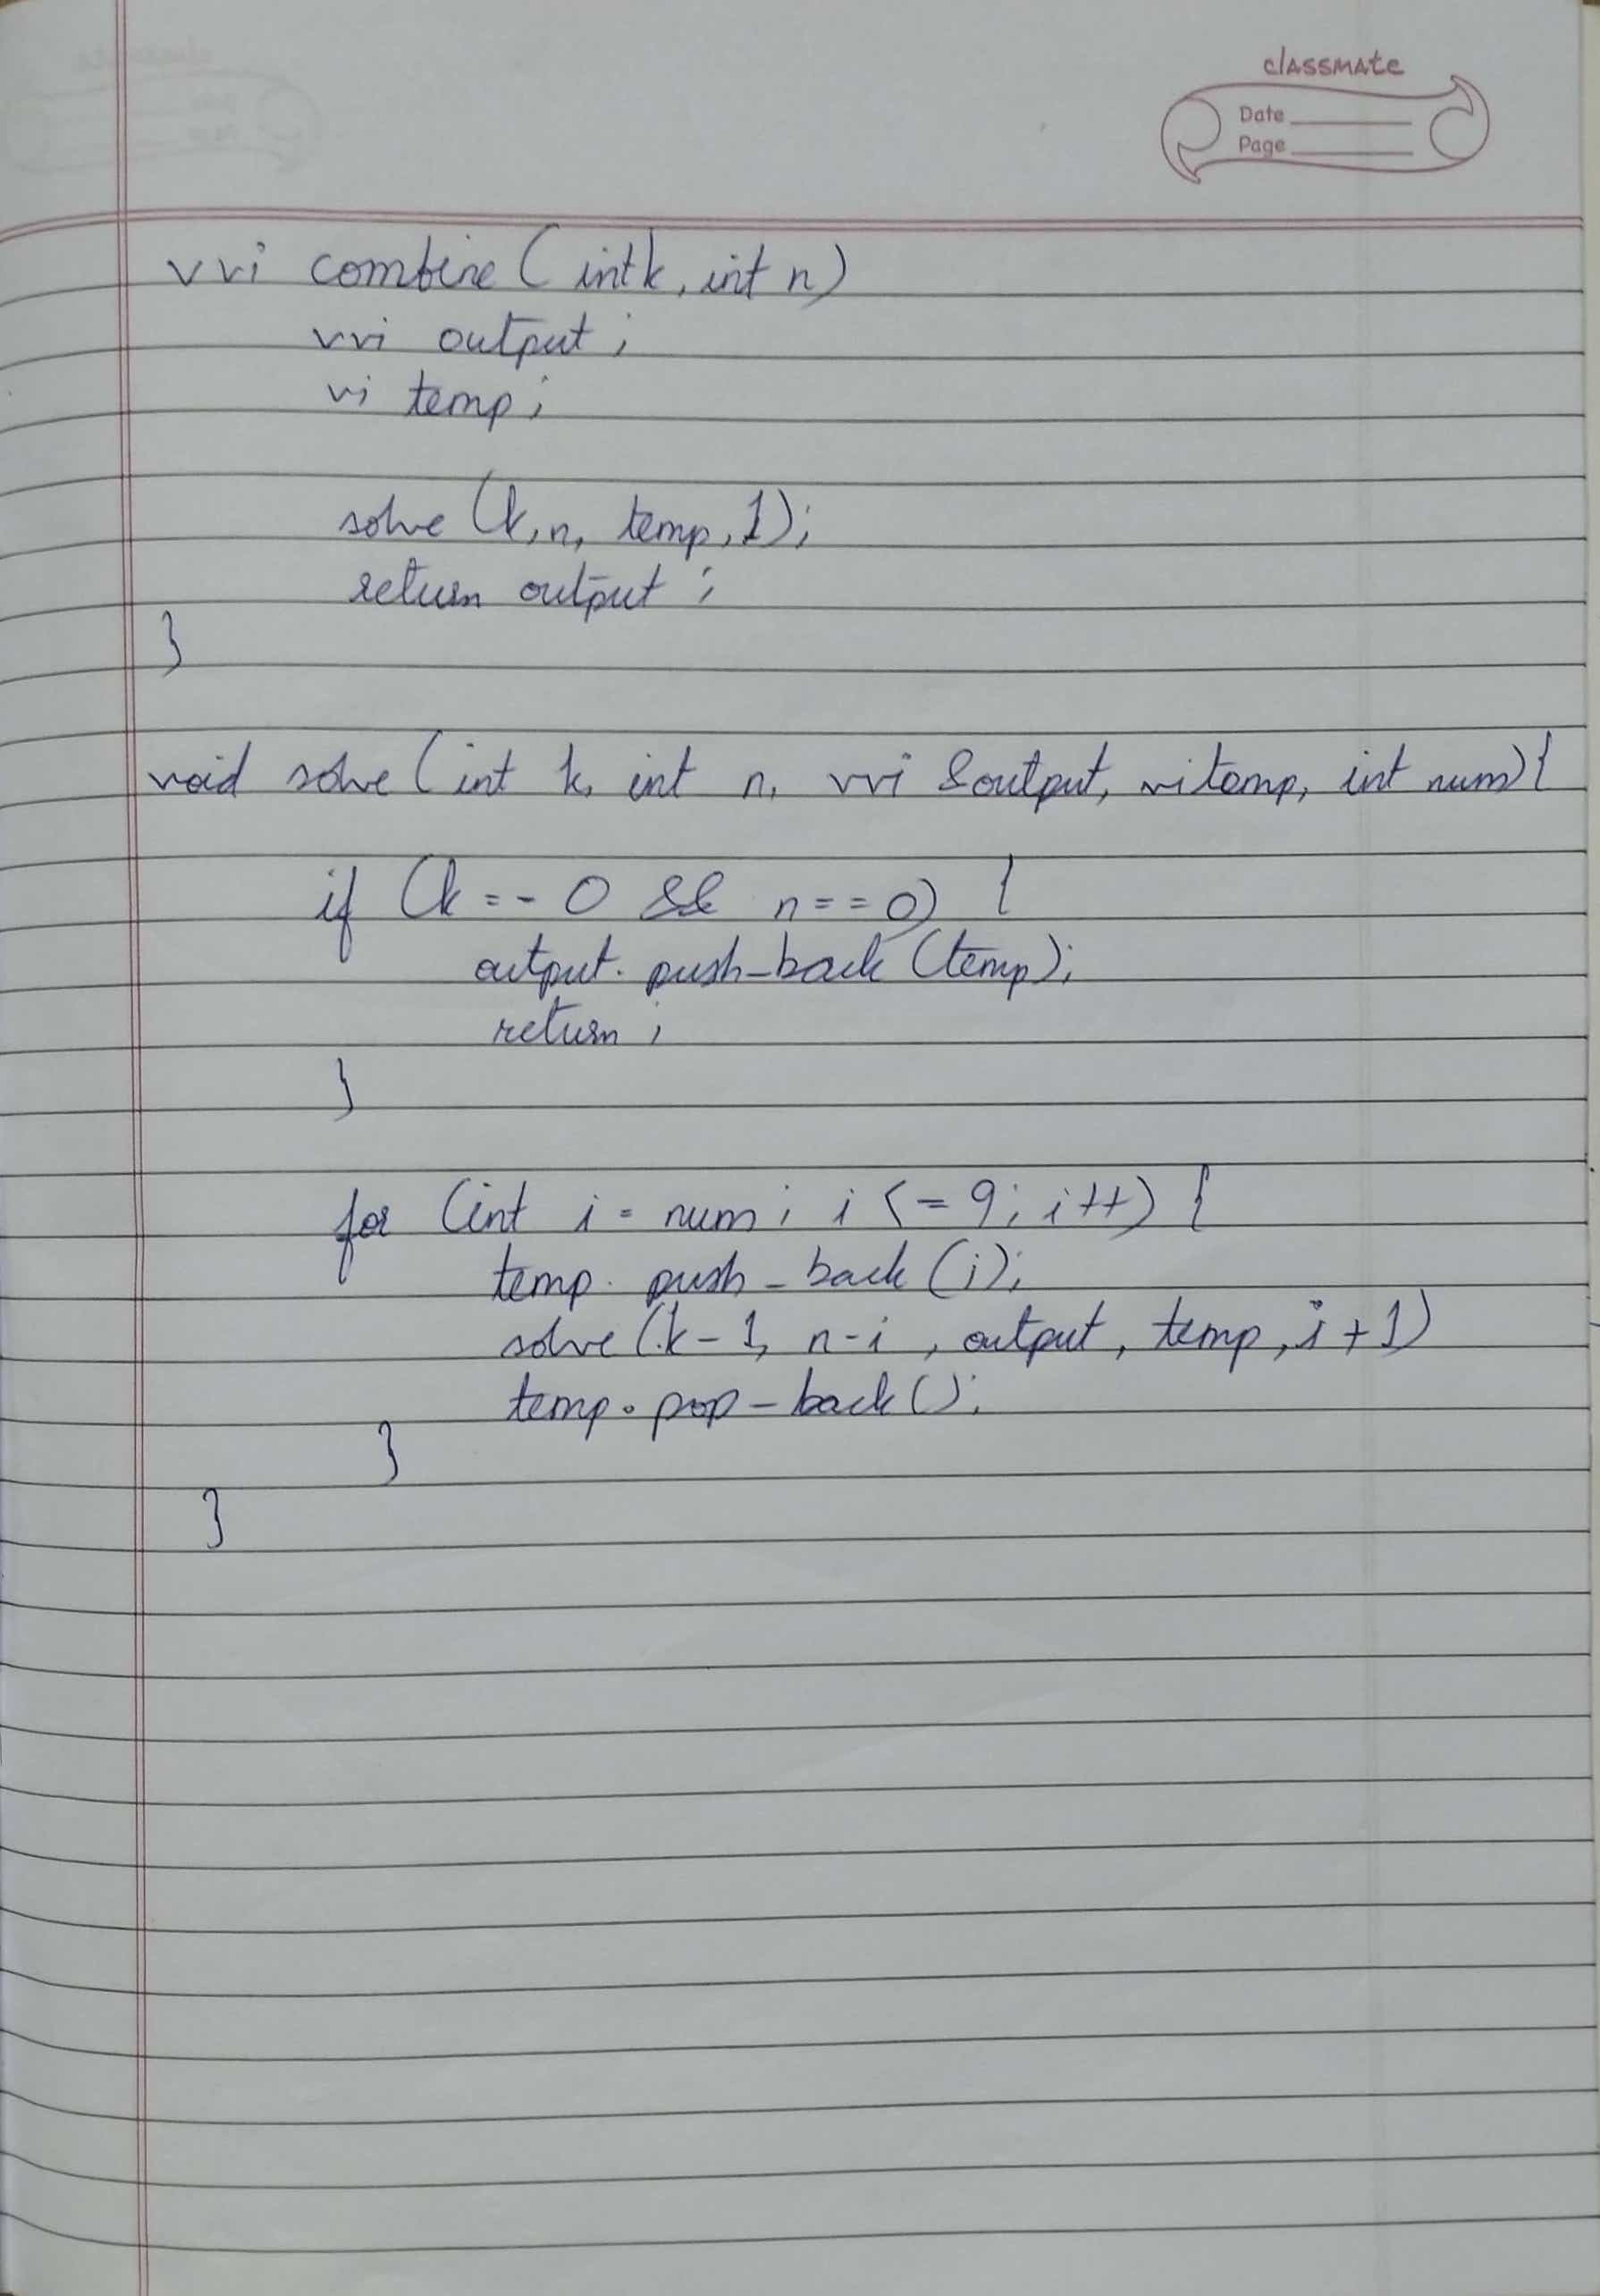 classmate
Date
Page
vvi combine (int k, int n)
vvi output;
vi temp;
solve (k, n, temp, 1);
return output;
}
void solve (int k, int n, vvi &output, vi temp, int num) {
if (k == 0 && n == 0) {
output. push_back (temp);
return;
}
for (int i = num; i <= 9; i++) {
temp. push_back (i);
solve (k-1, n-i, output, temp, i+1)
temp. pop_back ();
}
}